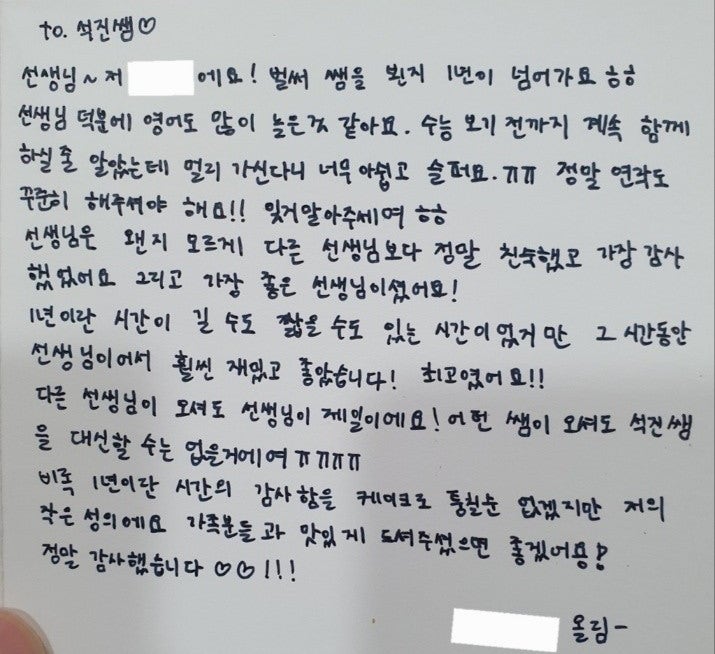 to. 석진쌤♡
선생님~ 저 에요! 벌써 쌤을 뵌지 1년이 넘어가요 ㅎㅎ
선생님 덕분에 영어도 많이 늘은것 같아요. 수능 보기 전까지 계속 함께
하실 줄 알았는데 멀리 가신다니 너무 아쉽고 슬퍼요.ㅠㅠ 정말 연락도
꾸준히 해주셔야 해요!! 잊거알아주세여 ㅎㅎ
선생님은 왠지 모르게 다른 선생님보다 정말 친숙했고 가장 감사
했었어요 그리고 가장 좋은 선생님이셨어요!
1년이란 시간이 길 수도 짧을 수도 있는 시간이었거만 그 시간동안
선생님이어서 훨씬 재밌고 좋았습니다! 최고였어요!!
다른 선생님이 오셔도 선생님이 제일이에요! 어떤 쌤이 오셔도 석진쌤
을 대신할 수는 없을거에여 ㅠㅠㅠㅠ
비록 1년이란 시간의 감사함을 케이크로 퉁칠순 없겠지만 저의
작은 성의에요 가족분들과 맛있게 드셔주셨으면 좋겠어용!
정말 감사했습니다 ♡♡!!!
올림-